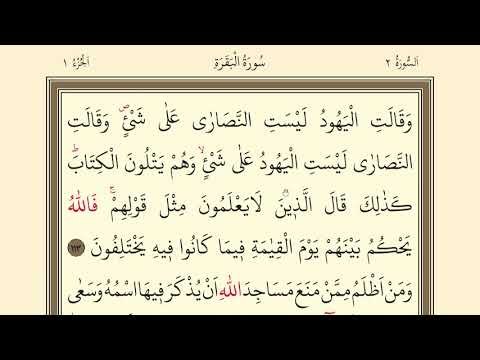 اَلسُّورَةُ ٢ سُورَةُ الْبَقَرَةِ اَلْجُزْءُ ١
وَقَالَتِ الْيَهُودُ لَيْسَتِ النَّصَارٰى عَلٰى شَيْءٍۖ وَقَالَتِ
النَّصَارٰى لَيْسَتِ الْيَهُودُ عَلٰى شَيْءٍۙ وَهُمْ يَتْلُونَ الْكِتَابَۜ
كَذٰلِكَ قَالَ الَّذٖينَ لَا يَعْلَمُونَ مِثْلَ قَوْلِهِمْۚ فَاللّٰهُ
يَحْكُمُ بَيْنَهُمْ يَوْمَ الْقِيٰمَةِ فٖيمَا كَانُوا فٖيهِ يَخْتَلِفُونَ ١١٣
وَمَنْ اَظْلَمُ مِمَّنْ مَنَعَ مَسَاجِدَ اللّٰهِ اَنْ يُذْكَرَ فٖيهَا اسْمُهُ وَسَعٰى